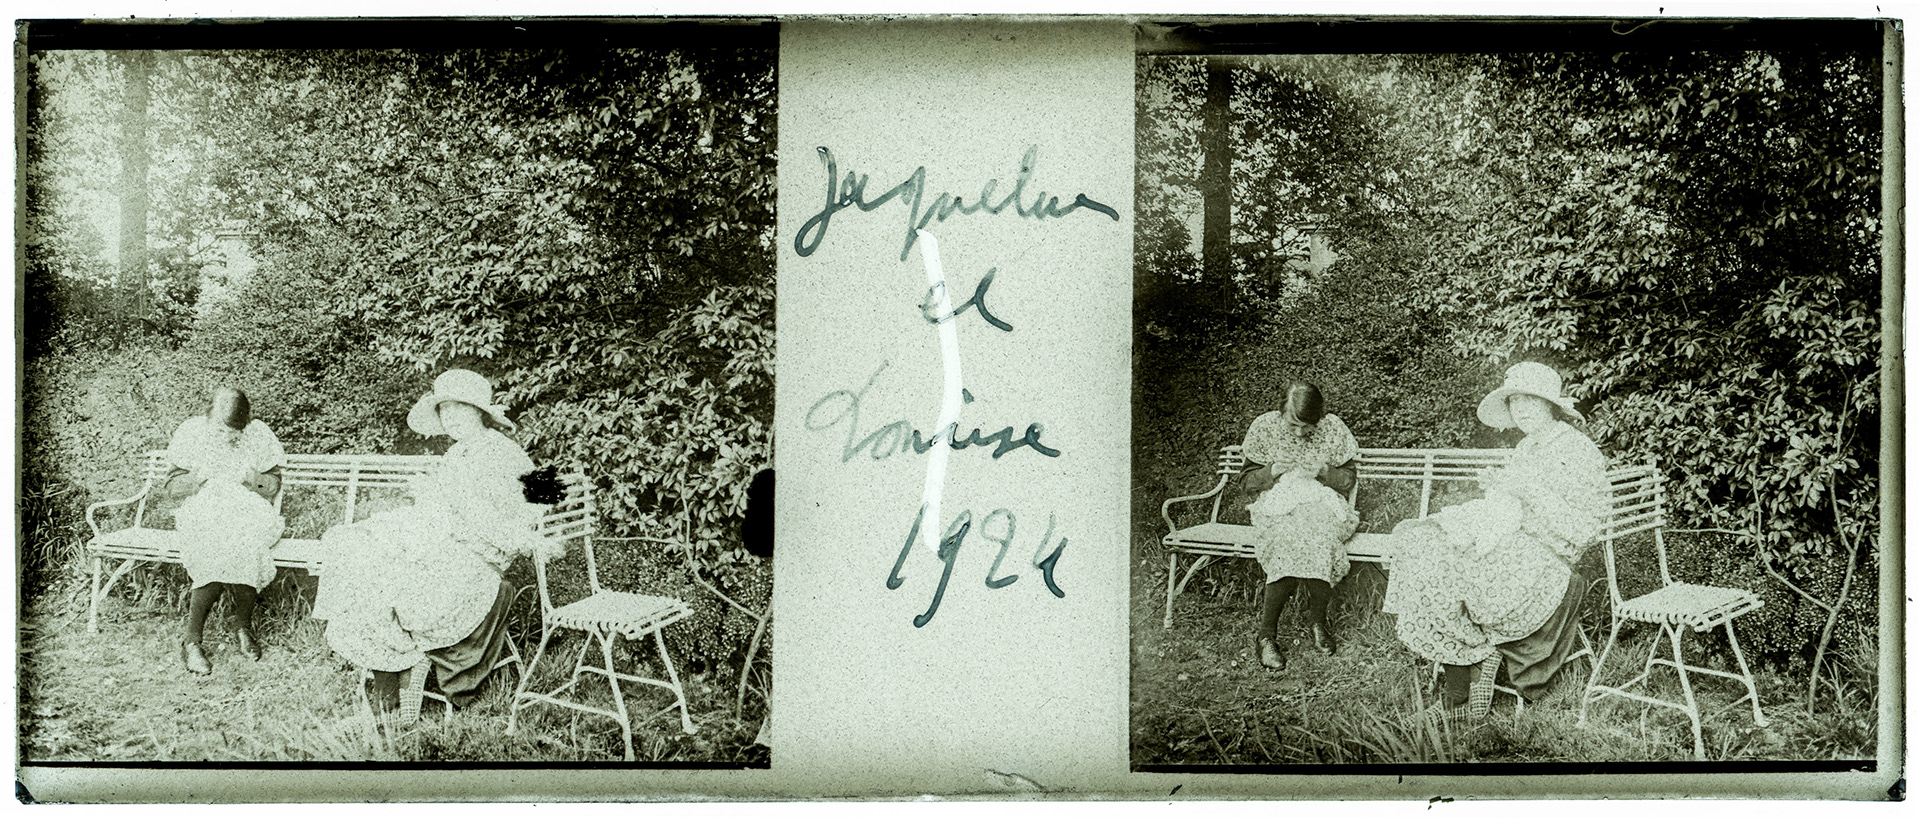 Jaqueline
et
Louise
1924